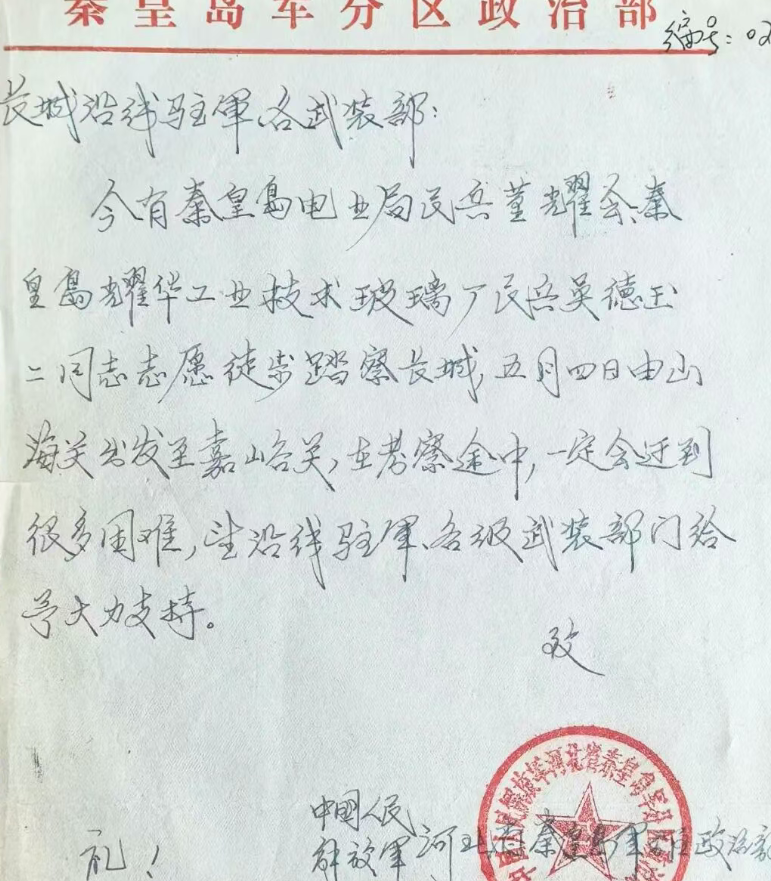 秦皇岛军分区政治部
编号：02
长城沿线驻军、各武装部：
今有秦皇岛电业局民兵董耀会、秦
皇岛耀华工业技术玻璃厂民兵吴德玉
二同志志愿徒步踏察长城，五月四日由山
海关出发至嘉峪关，在考察途中，一定会遇到
很多困难，望沿线驻军、各级武装部门给
予大力支持。
致
礼！
中國人民
解放軍河北省秦皇岛军分区政治部